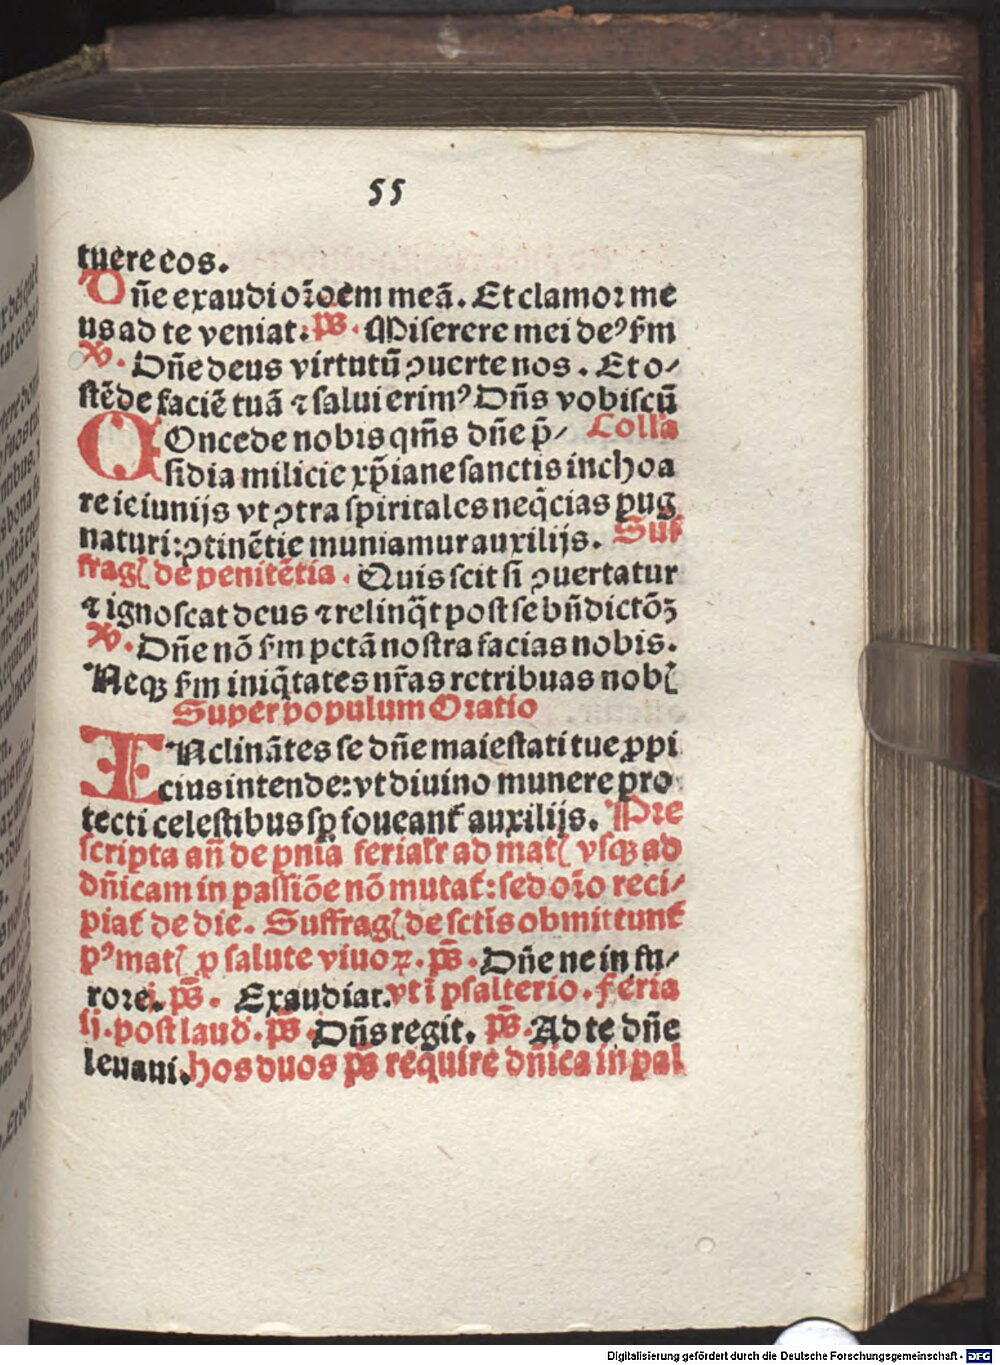 55
tuere eos.
Dñe exaudi or̄oem meā. Et clamor me
us ad te veniat. p̄s. Miserere mei deꝰ ẜm
℣. Dñe deus virtutū ꝯuerte nos. Et o⸗
stēde faciē tuā ⁊ salui erimꝰ Dñs vobiscū
COncede nobis qm̄s dñe p̄⸗ Collā
sidia milicie xp̄iane sanctis inchoa
re ieiunijs vt ꝯtra spiritales neq̄cias pug
naturi: ꝯtinētie muniamur auxilijs. Suf
fraḡ de penitētia. Quis scit si ꝯuertatur
⁊ ignoscat deus ⁊ relinq̄t post se bn̄dictōꝫ
℣. Dñe nō ẜm pctā nostra facias nobis.
Neqꝫ ẜm iniq̄tates nr̄as retribuas nob̄
Super populum Oratio
INclinātes se dñe maiestati tue ꝓpi
cius intende: vt diuino munere pro
tecti celestibus sꝑ foueant᷑ auxilijs. Pre
scripta an̄ de pn̄ia ferialr̄ ad mat̄ vsqꝫ ad
dn̄icam in passiōe nō mutat᷑: sed or̄o reci⸗
piat᷑ de die. Suffraḡ de sctīs obmittunt᷑
pꝰ mat̄ ꝓ salute viuoꝝ. p̄s. Dñe ne in fu⸗
rore. j. p̄s. Exaudiat. vt ī psalterio. feria
ij. post laud̄. p̄s. Dñs regit. p̄s. Ad te dñe
leuaui. hos duos p̄s require dn̄ica in pal
Digitalisierung gefördert durch die Deutsche Forschungsgemeinschaft - DFG